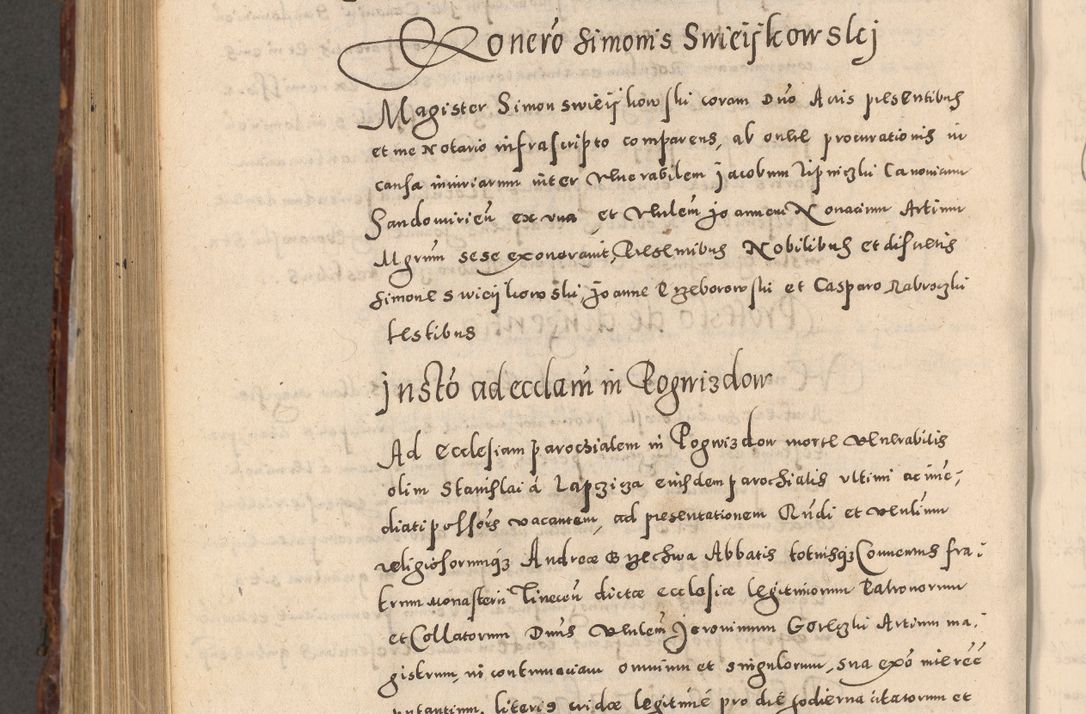 Exonero Simonis Swieijkowskj
Magister Simon swieijkowski coram Dno Actis presentibus
et me Notario infrascripto comparens, ab onere procurationis in
causa iniuriarum inter Venerabilem Jacobum Lipniczki Canonicum
Sandomirien ex una et Vnlem Joannem Artium
Mgrum sese exoneravit, Presentibus Nobilibus et discretis
Simone Swieijkowski, Joanne Przeborowski et Casparo Nabroczki
testibus
Instō ad ecclam in Pogwizdow
Ad Ecclesiam parochialem in Pogwizdow morte Venerabilis
olim Stanislai à eiusdem parochialis ultimi ac im̄e,
diati possors vacantem, ad presentationem Rndi et venlium
religiosorumq3 Andreæ Abbatis totiusq3 Conventus fra,
trum Monasterii Tinecen dictæ ecclesiæ legitimorum Patronorum
et Collatorum Dnus Vnlem Jeronimum Artium ma,
gistrum, in contumaciam omnium et singulorum, sua exō interēē
putantium, literis eidæ legitimē pro diē hodierna citatorum et